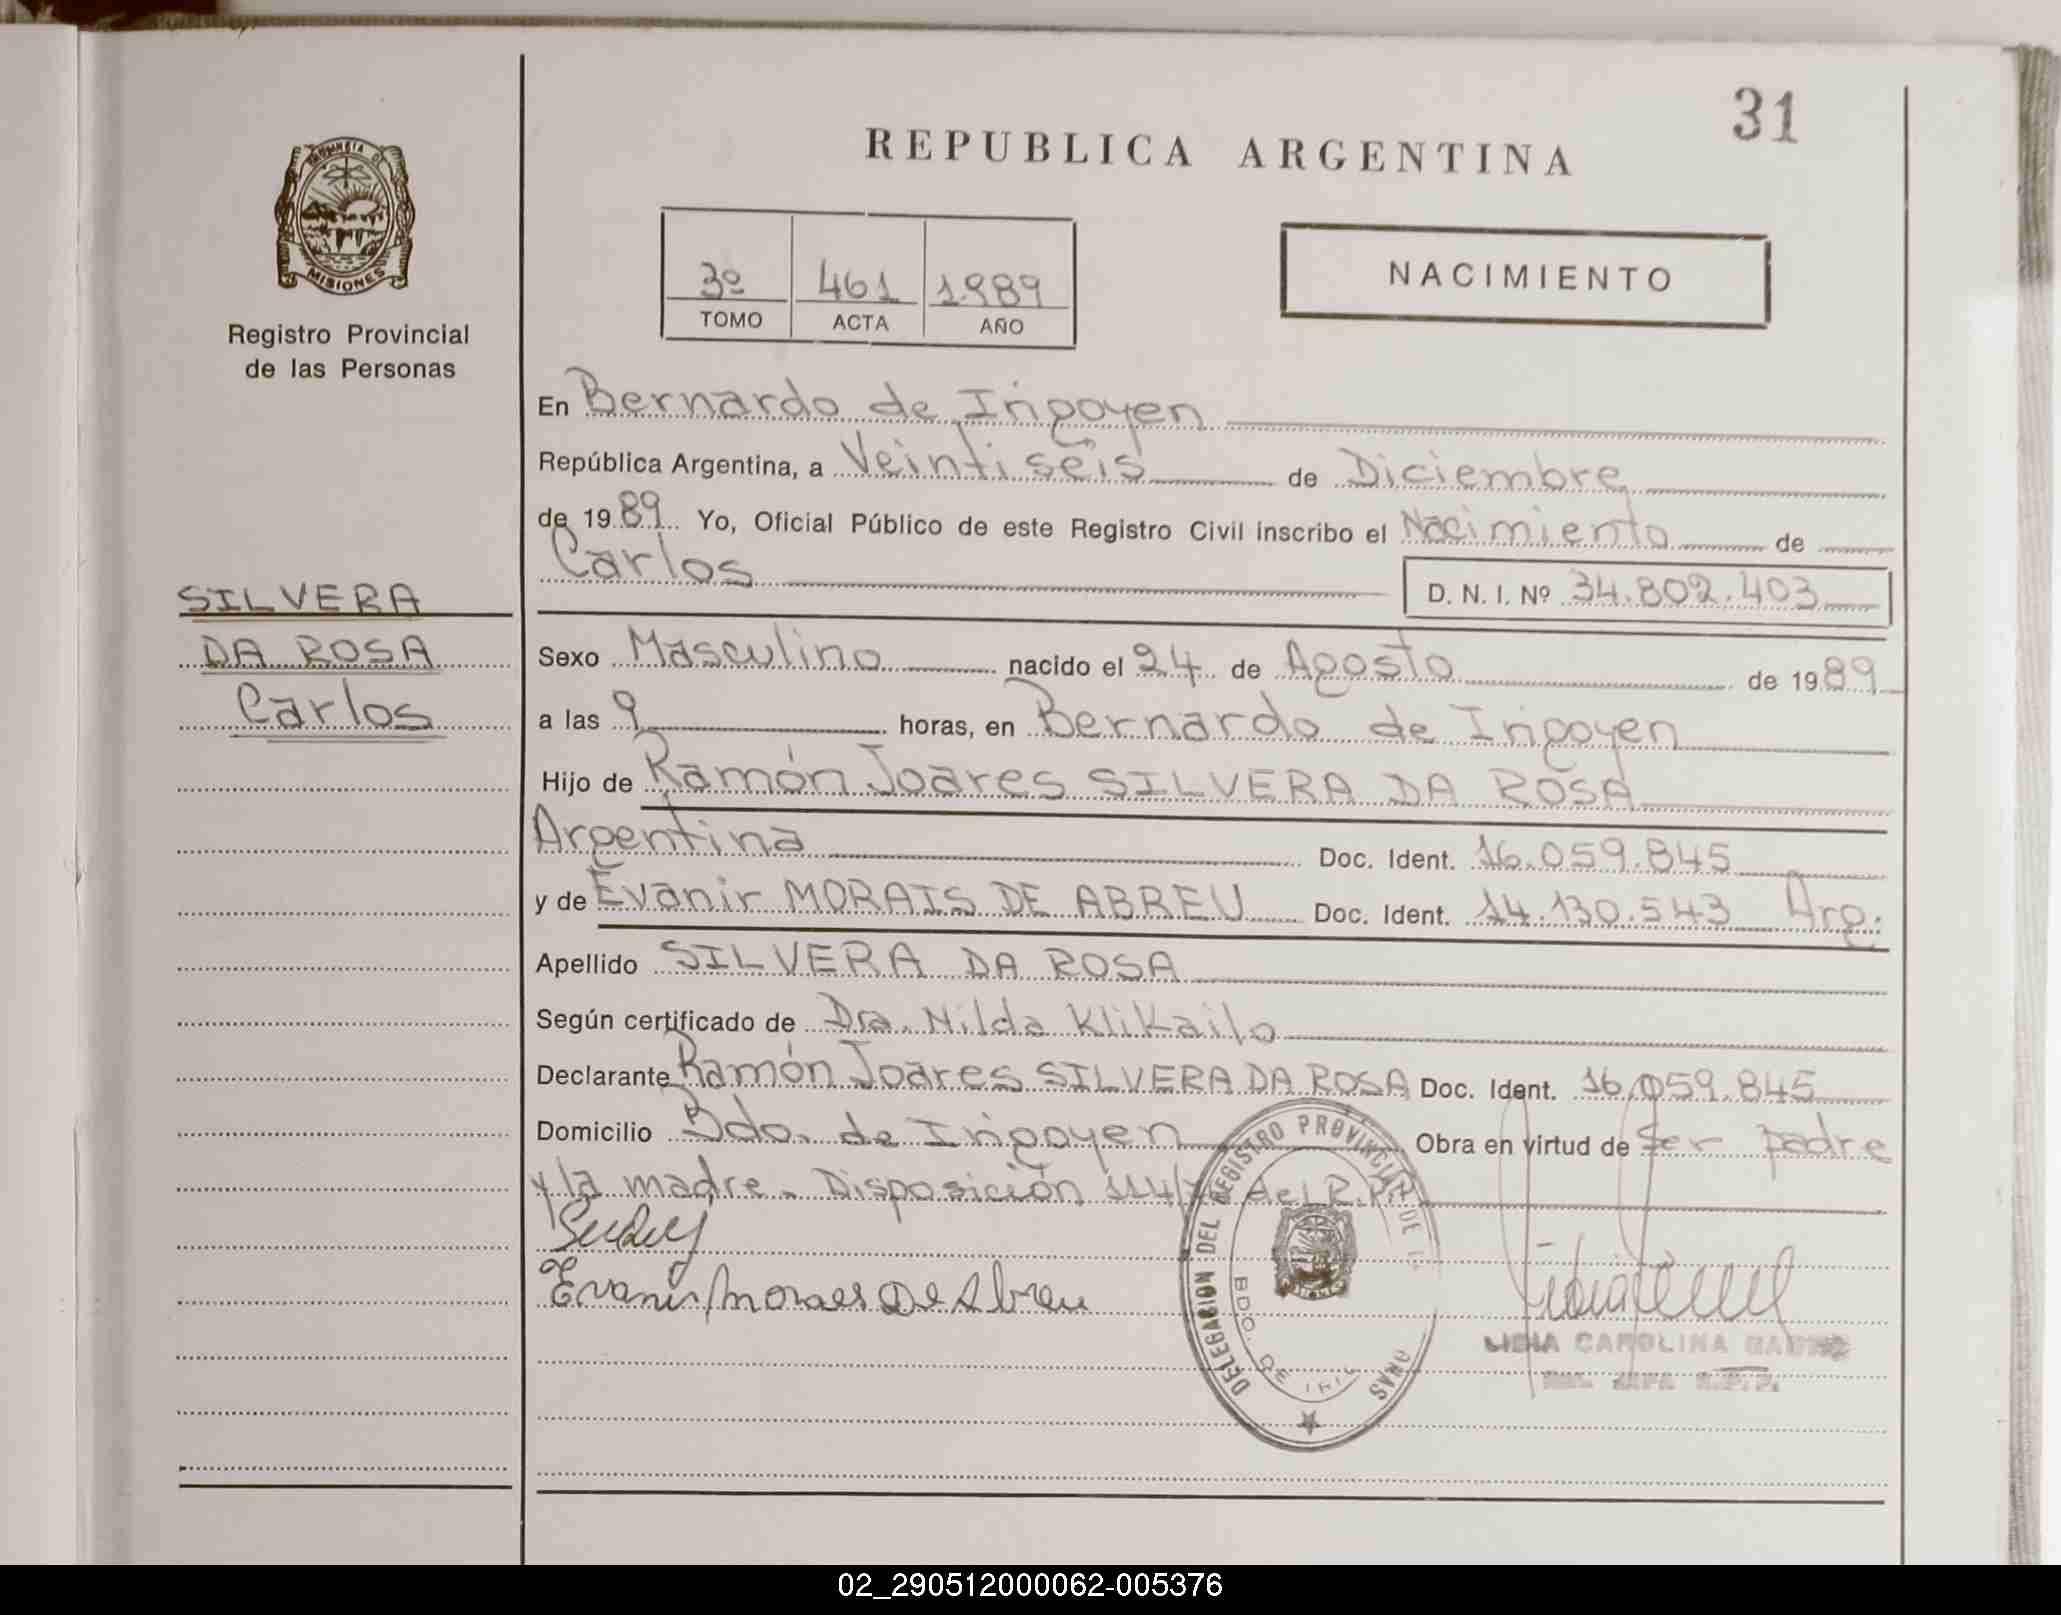 31
REPUBLICA ARGENTINA
PROVINCIA DE
MISIONES
Registro Provincial
de las Personas
3º 461 1.989
TOMO ACTA AÑO
NACIMIENTO
En Bernardo de Irigoyen
República Argentina, a Veintiseis de Diciembre
de 1989 Yo, Oficial Público de este Registro Civil inscribo el Nacimiento de
Carlos D. N. I. Nº 34.802.403
SILVERA
DA ROSA
Carlos
Sexo Masculino nacido el 24 de Agosto de 1989
a las 9 horas, en Bernardo de Irigoyen
Hijo de Ramón Joares SILVERA DA ROSA
Argentina Doc. Ident. 16.059.845
y de Evanir MORAIS DE ABREU Doc. Ident. 14.130.543 Arg.
Apellido SILVERA DA ROSA
Según certificado de Dra. Nilda Klikailo
Declarante Ramón Joares SILVERA DA ROSA Doc. Ident. 16.059.845
Domicilio Bdo. de Irigoyen Obra en virtud de ser padre
y la madre. Disposición del R.P.
Evanir Moraes De Abreu
DELEGACION DEL REGISTRO PROVINCIAL DE
BDO. DE IRIG
LIDIA CAROLINA
02_290512000062-005376